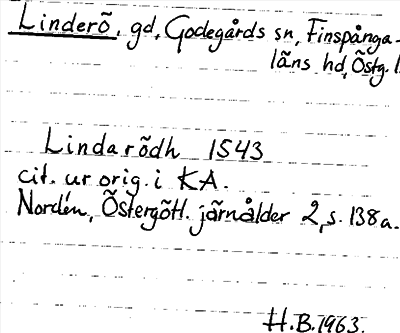 Linderö, gd, Godegårds sn, Finspånga-
läns hd, Östg. l.
Lindarödh 1543
cit. ur orig. i KA.
Nordén, Östergötl. järnålder 2, s. 138 a.
H.B. 1963.